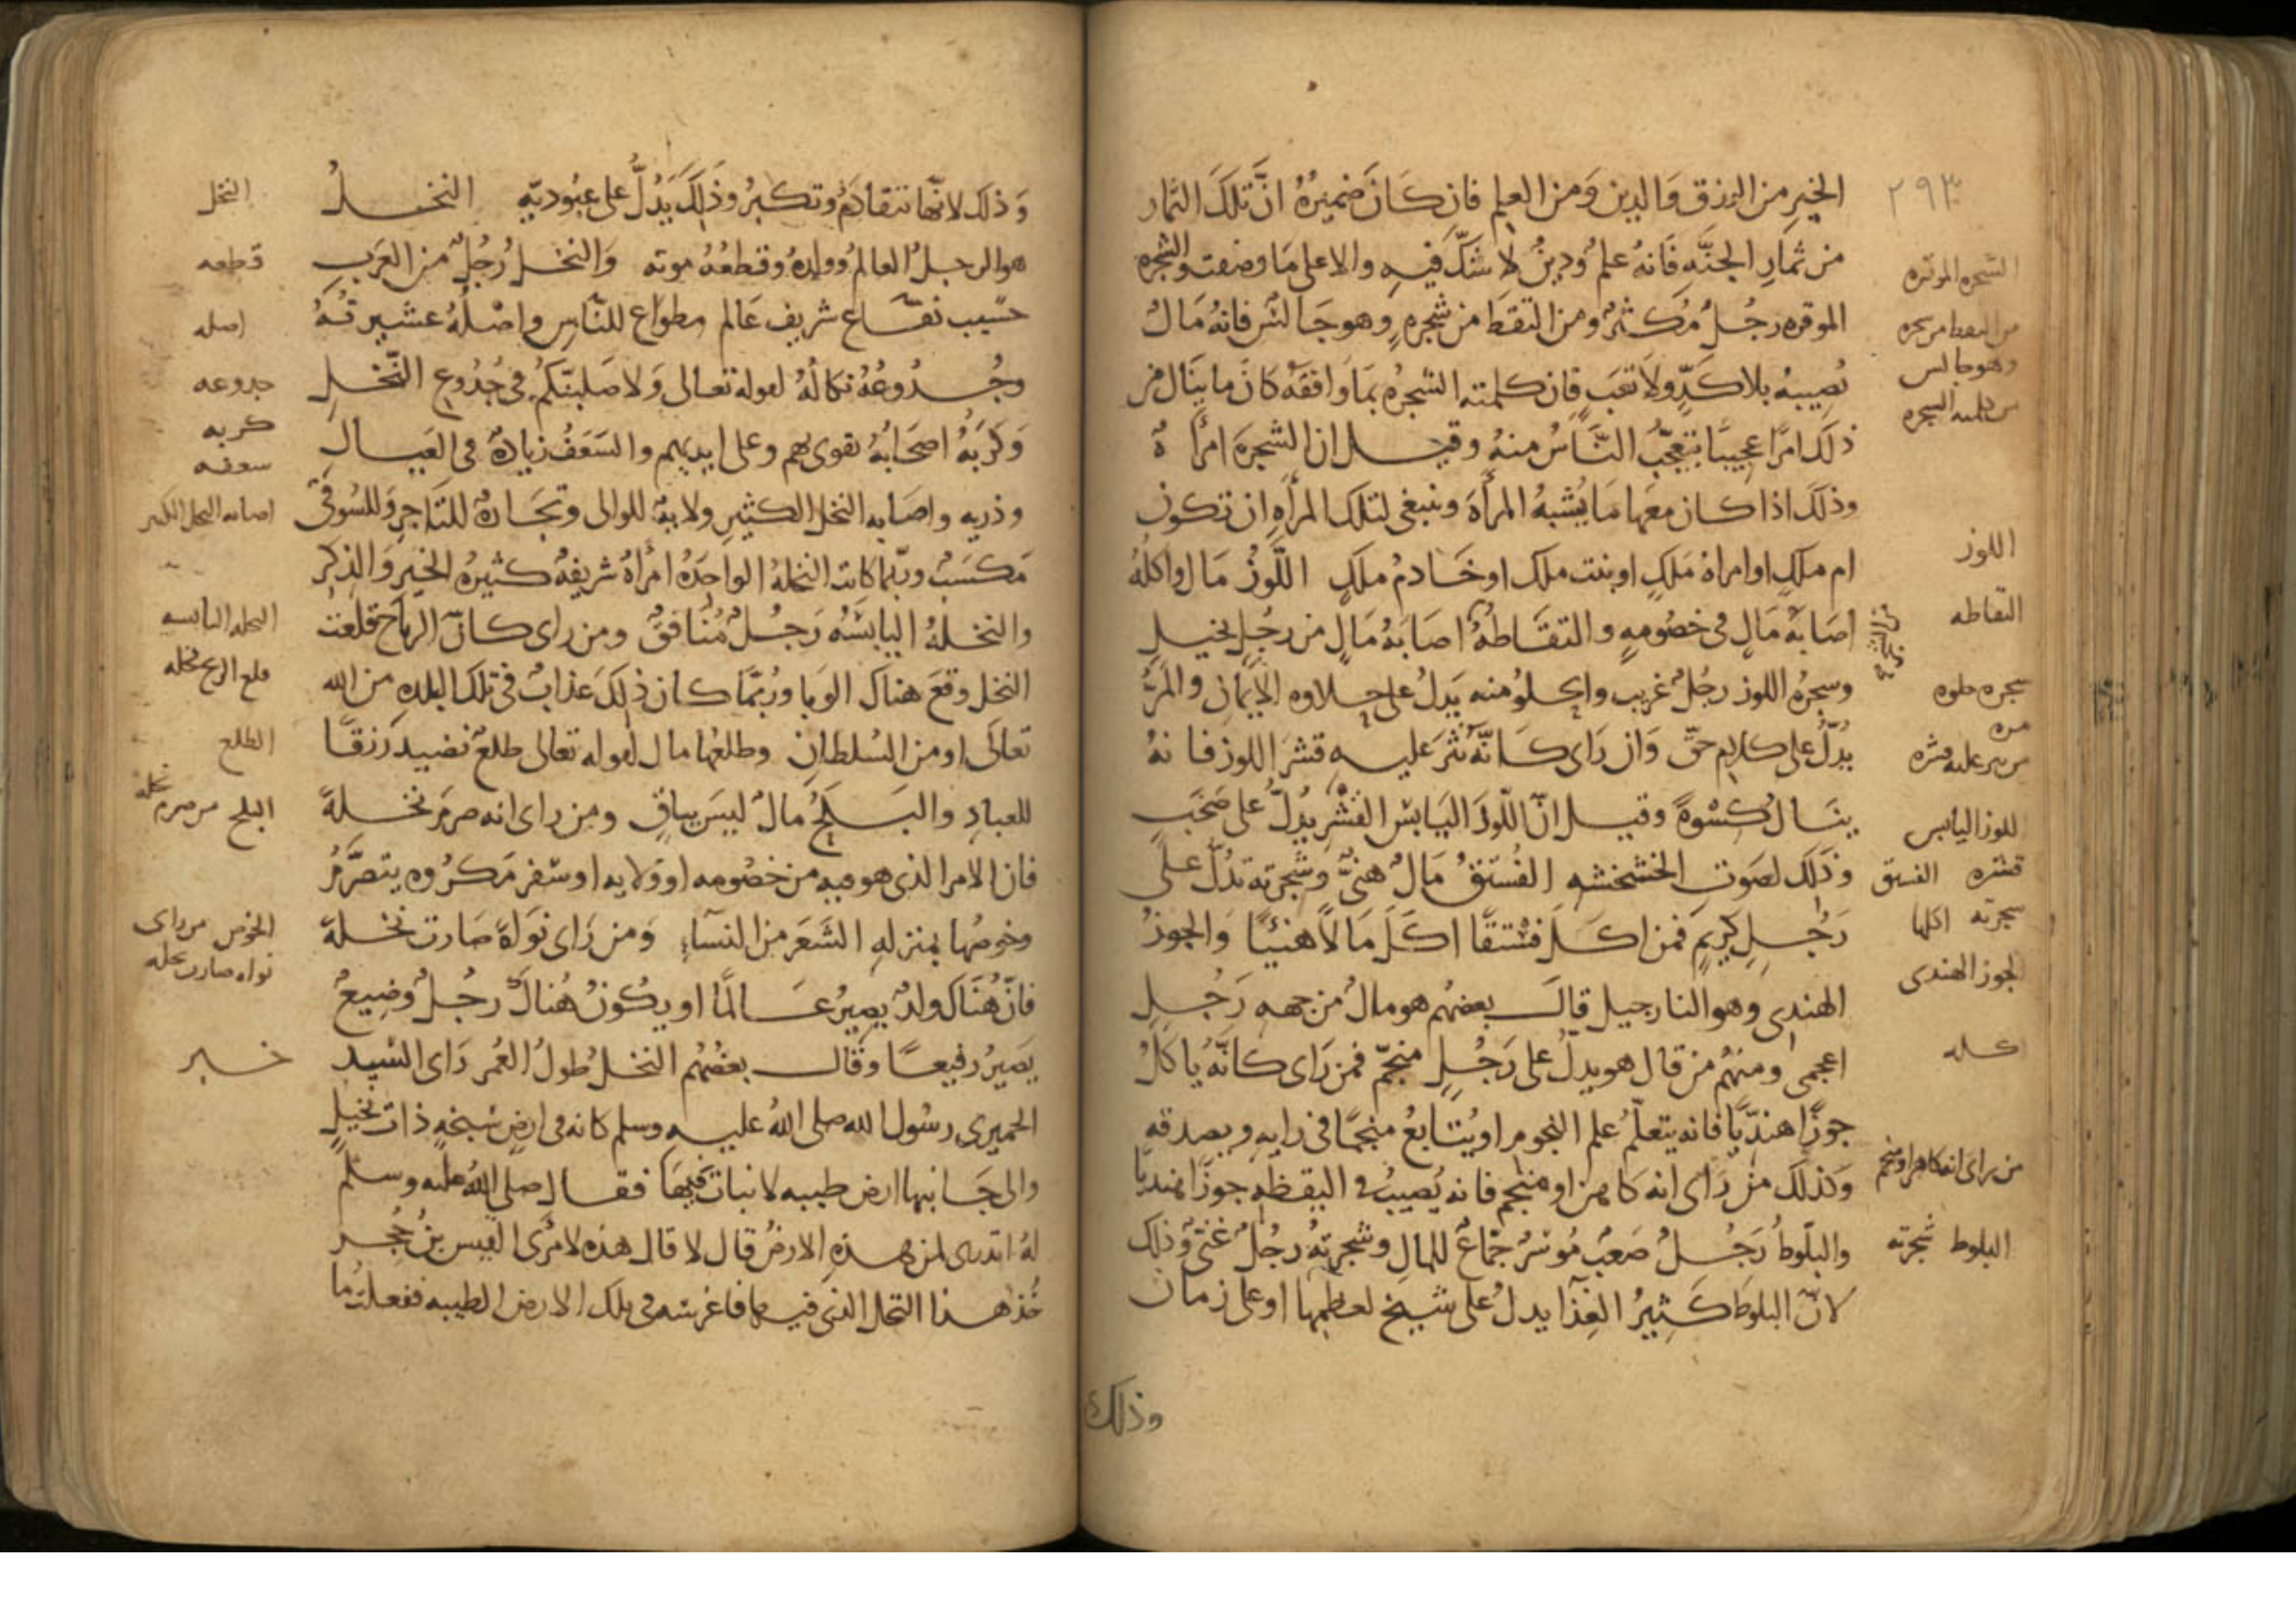 ٢٩٣
الخير من الرزق والدين ومن العلم فان كان ضميره ان تلك الثمار
من ثمار الجنه فانه علم ودين لا شك فيه والا على ما وصفت والشجره
الموقره رجل مكثر ومن التقط من شجره وهو جالس فانه مال
نصيبه بلا كد ولا تعب فان كلمته الشجره بما وافقه كان ما ينال من
ذلك امرا عجيبا يتعجب الناس منه وقيل ان الشجره امراة
وذلك اذا كان معها ما يشبه المرأة وينبغي لتلك المرأه ان تكون
ام ملك او امراة ملك او بنت ملك او خادم ملك اللوز مال واكله
اصابة مال في خصومه والتقاطه اصابة مال من رجل بخيل
وسجره اللوز رجل غريب والحلو منه يدل على حلاوه الايمان والمر
يدل على كلام حق وان راى كانه نثر عليه قشر اللوز فانه
ينال كسوة وقيل ان اللوز اليابس القشر يدل على صخب
وذلك لصوت الخشخشه الفستق مال هني وشجرته تدل على
رجل كريم فمن اكل فستقا اكل مالا هنئيا والجوز
الهندي وهو النارجيل قال بعضهم هو مال من جهه رجل
اعجمى ومنهم من قال هو يدل على رجل منجم فمن راى كانه ياكل
جوزا هنديا فانه يتعلم علم النجوم او يتابع منجما في رايه ويصدقه
وكذلك من راى انه كاهن او منجم فانه يصيب في اليقظه جوزا هنديا
والبلوط رجل صعب موسر جماع للمال وشجرته رجل غني وذلك
لان البلوط كثير الغذا يدل على شيخ لعظمها او على زمان
وذلك
الشجره الموقره
من التقط من شجره
وهو جالس
من كلمته الشجره
اللوز
التقاطه
شجره حلوه
مره
من نثر عليه قشره
اللوز اليابس
قشره الفستق
شجرته اكلها
الجوز الهندى
اكله
من راى انه كاهن او منجم
البلوط شجرته
وذلك لانها تتقادم وتكبر وذلك يدل على عبوديه النخل
هو الرجل العالم وولده وقطعه موته والنخل رجل من العرب
حسيب نفاع شريف عالم مطواع للناس واصله عشيرته
وجدوعه نكاله لقوله تعالى ولاصلبنكم في جدوع النخل
وكربه اصحابه تقوى بهم وعلى ايديهم والسعف زيادة في العيال
وذريه واصابه النخل الكثير ولاية للوالى وتجارة للتاجر وللسوقى
مكسب وربما كانت النخلة الواحدة امرأة شريفة كثيرة الخير والذكر
والنخلة اليابسه رجل منافق ومن راى كان الرياح قلعت
النخل وقع هناك الوبا وربما كان ذلك عذاب في تلك البلده من الله
تعالى او من السلطان وطلعها مال لقوله تعالى طلع نضيد رزقا
للعباد والبلح مال ليس بباق ومن راى انه صرم نخلة
فان الامر الذى هو فيه من خصومه او ولايه او سفر مكروه يتصرم
وخوصها بمنزله الشعر من النساء ومن راى نواة صارت نخلة
فان هناك ولد يصير عالما او يكون هناك رجل وضيع
يصير رفيعا وقال بعضهم النخل طول العمر راى السيد
الحميرى رسول الله صلى الله عليه وسلم كانه في ارض سبخه ذات نخيل
والى جانبها ارض طيبه لا نبات فيها فقال صلى الله عليه وسلم
له اتدرى لمن هذه الارض قال لا قال هذه لامرئ القيس بن حجر
خذ هذا النخل الذى فيها فاغرسه في تلك الارض الطيبه ففعلت ما
النخل
قطعه
اصله
جدوعه
كربه
سعفه
اصابه النخل الكثير
النخله اليابسه
قلع الريح نخله
الطلع
البلح من صرم نخله
الخوص من راى
نواه صارت نخله
خبر